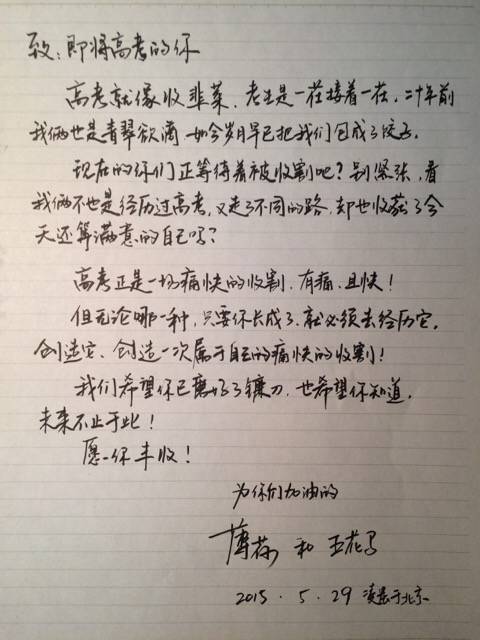 致:即将高考的你
高考就像收韭菜,老是一茬接着一茬,二十年前
我俩也是青翠欲滴 如今岁月早已把我们包成了饺子。
现在的你们正等待着被收割吧?别紧张,看
我俩不也是经历过高考,又走了不同的路,却也收获了今
天还算满意的自己吗?
高考正是一场痛快的收割,有痛,且快!
但无论哪一种,只要你长成了,就必须去经历它,
创造它、创造一次属于自己的痛快的收割!
我们希望你已磨好了镰刀,也希望你知道,
未来不止于此!
愿你丰收!
为你们加油的
薄荷 和 五花马
2015.5.29 凌晨于北京